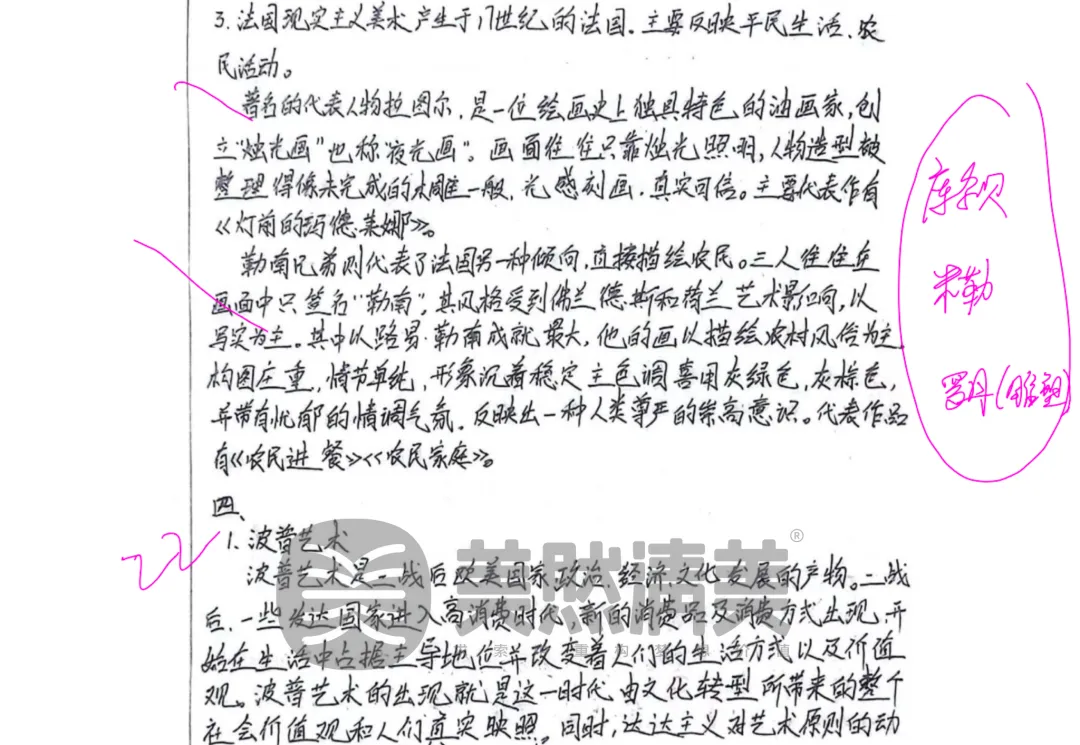 3.法国现实主义美术产生于17世纪的法国。主要反映平民生活、农
民活动。
著名的代表人物拉图尔,是一位绘画史上独具特色的油画家,创
立“烛光画”也称“夜光画”。画面往往只靠烛光照明,人物造型被
整理得像未完成的木雕一般,光感刻画,真实可信。主要代表作有
《灯前的玛德莱娜》。
勒南兄弟则代表了法国另一种倾向,直接描绘农民。三人往往在
画面中只签名“勒南”,其风格受到佛兰德斯和荷兰艺术影响,以
写实为主。其中以路易·勒南成就最大,他的画以描绘农村风俗为主,
构图庄重,情节单纯,形象沉着稳定主色调喜用灰绿色,灰棕色,
并带有忧郁的情调气氛,反映出一种人类尊严的崇高意识。代表作品
有《农民进餐》《农民家庭》。
库尔贝
米勒
罗丹(雕塑)
四、
22
1、波普艺术
波普艺术是二战后欧美国家政治、经济、文化发展的产物。二战
后,一些发达国家进入高消费时代,新的消费品及消费方式出现,开
始在生活中占据主导地位并改变着人们的生活方式以及价值
观。波普艺术的出现就是这一时代由文化转型所带来的整个
社会价值观和人们真实映照。同时,达达主义对艺术原则的动
美然清美®